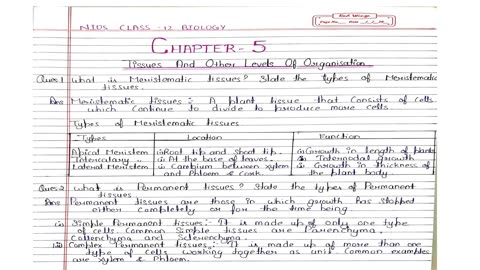 NIOS CLASS -12 BIOLOGY
CHAPTER- 5
Tissues And Other Levels Of Organisation
Ques 1 What is Meristematic tissues? State the types of Meristematic
tissues.
Ans Meristematic tissues:- A plant tissue that consists of cells
which continue to divide to produce more cells
Types of Meristematic tissues
Types Location Function
Apical Meristem (i) Root tip and Shoot tip. (i) Growth in length of plants
Intercalary " (ii) At the base of leaves. (ii) Internodal growth
Lateral Meristem (iii) Cambium between xylem (iii) Growth in thickness of
and Phloem & Cork. the plant body
Ques:2 What is Permanent tissues? State the types of Permanent
tissues
Ans Permanent tissues are those in which growth has stopped
either completely or for the time being
(i) Simple Permanent tissues:- It is made up of only one type
of cells. Common Simple tissues are Parenchyma,
Collenchyma and Sclerenchyma.
(ii) Complex Permanent tissues:- It is made up of more than one
type of cells working together as unit. Common examples
are xylem & Phloem.